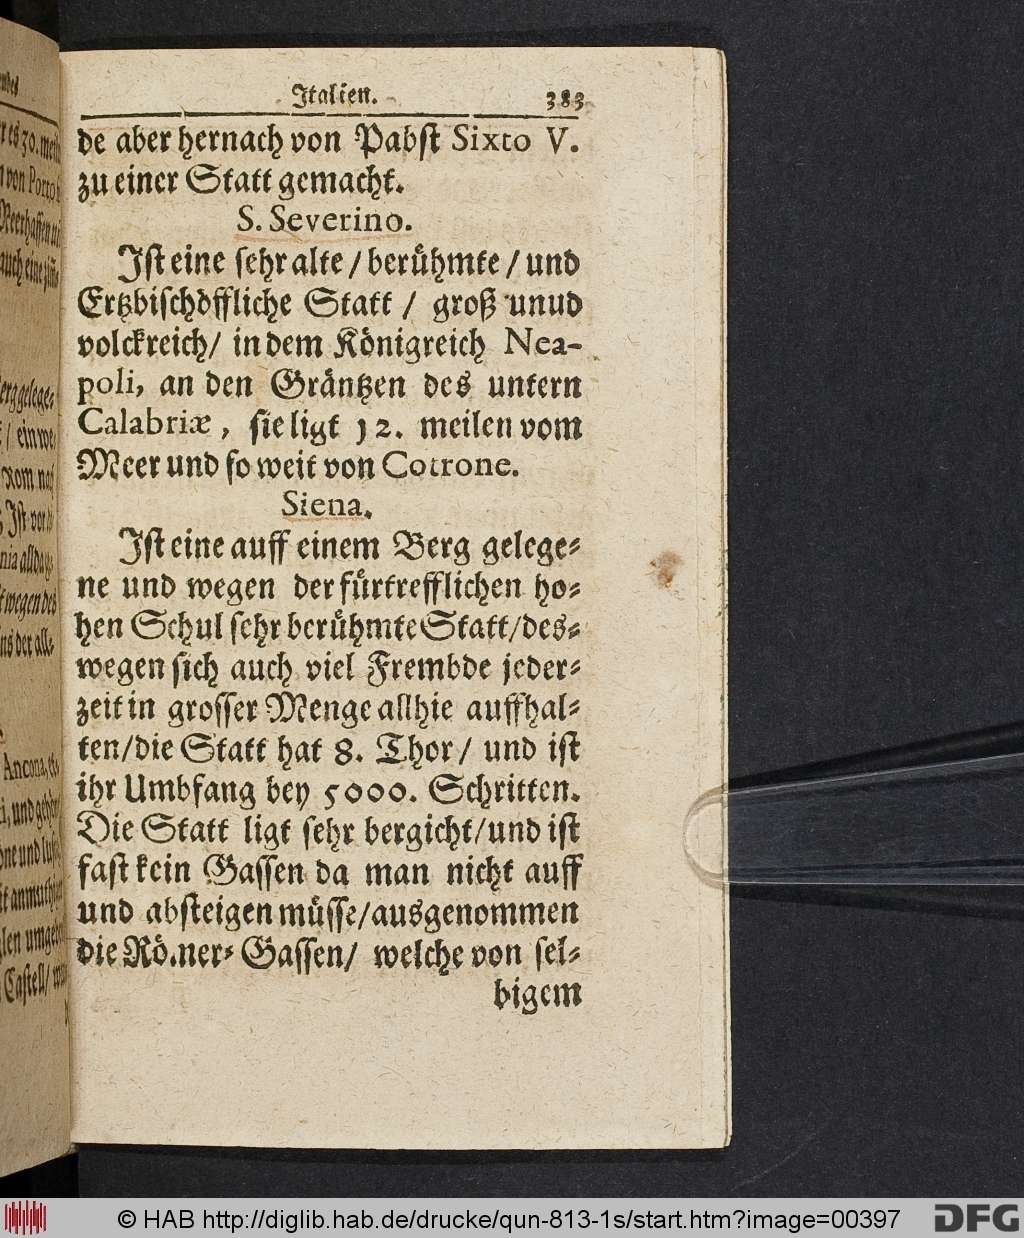 Italien. 383
de aber hernach von Pabst Sixto V.
zu einer Statt gemacht.
S. Severino.
Ist eine sehr alte / berühmte / und
Ertzbischöffliche Statt / groß unud
volckreich / in dem Königreich Nea-
poli, an den Gräntzen des untern
Calabriæ, sie ligt 12. meilen vom
Meer und so weit von Cotrone.
Siena.
Ist eine auff einem Berg gelege-
ne und wegen der fürtrefflichen ho-
hen Schul sehr berühmte Statt / des-
wegen sich auch viel Frembde jeder-
zeit in grosser Menge allhie auffhal-
ten / die Statt hat 8. Thor / und ist
ihr Umbfang bey 5000. Schritten.
Die Statt ligt sehr bergicht / und ist
fast kein Gassen da man nicht auff
und absteigen müsse / ausgenommen
die Rö.ner-Gassen / welche von sel-
bigem
© HAB http://diglib.hab.de/drucke/qun-813-1s/start.htm?image=00397 DFG